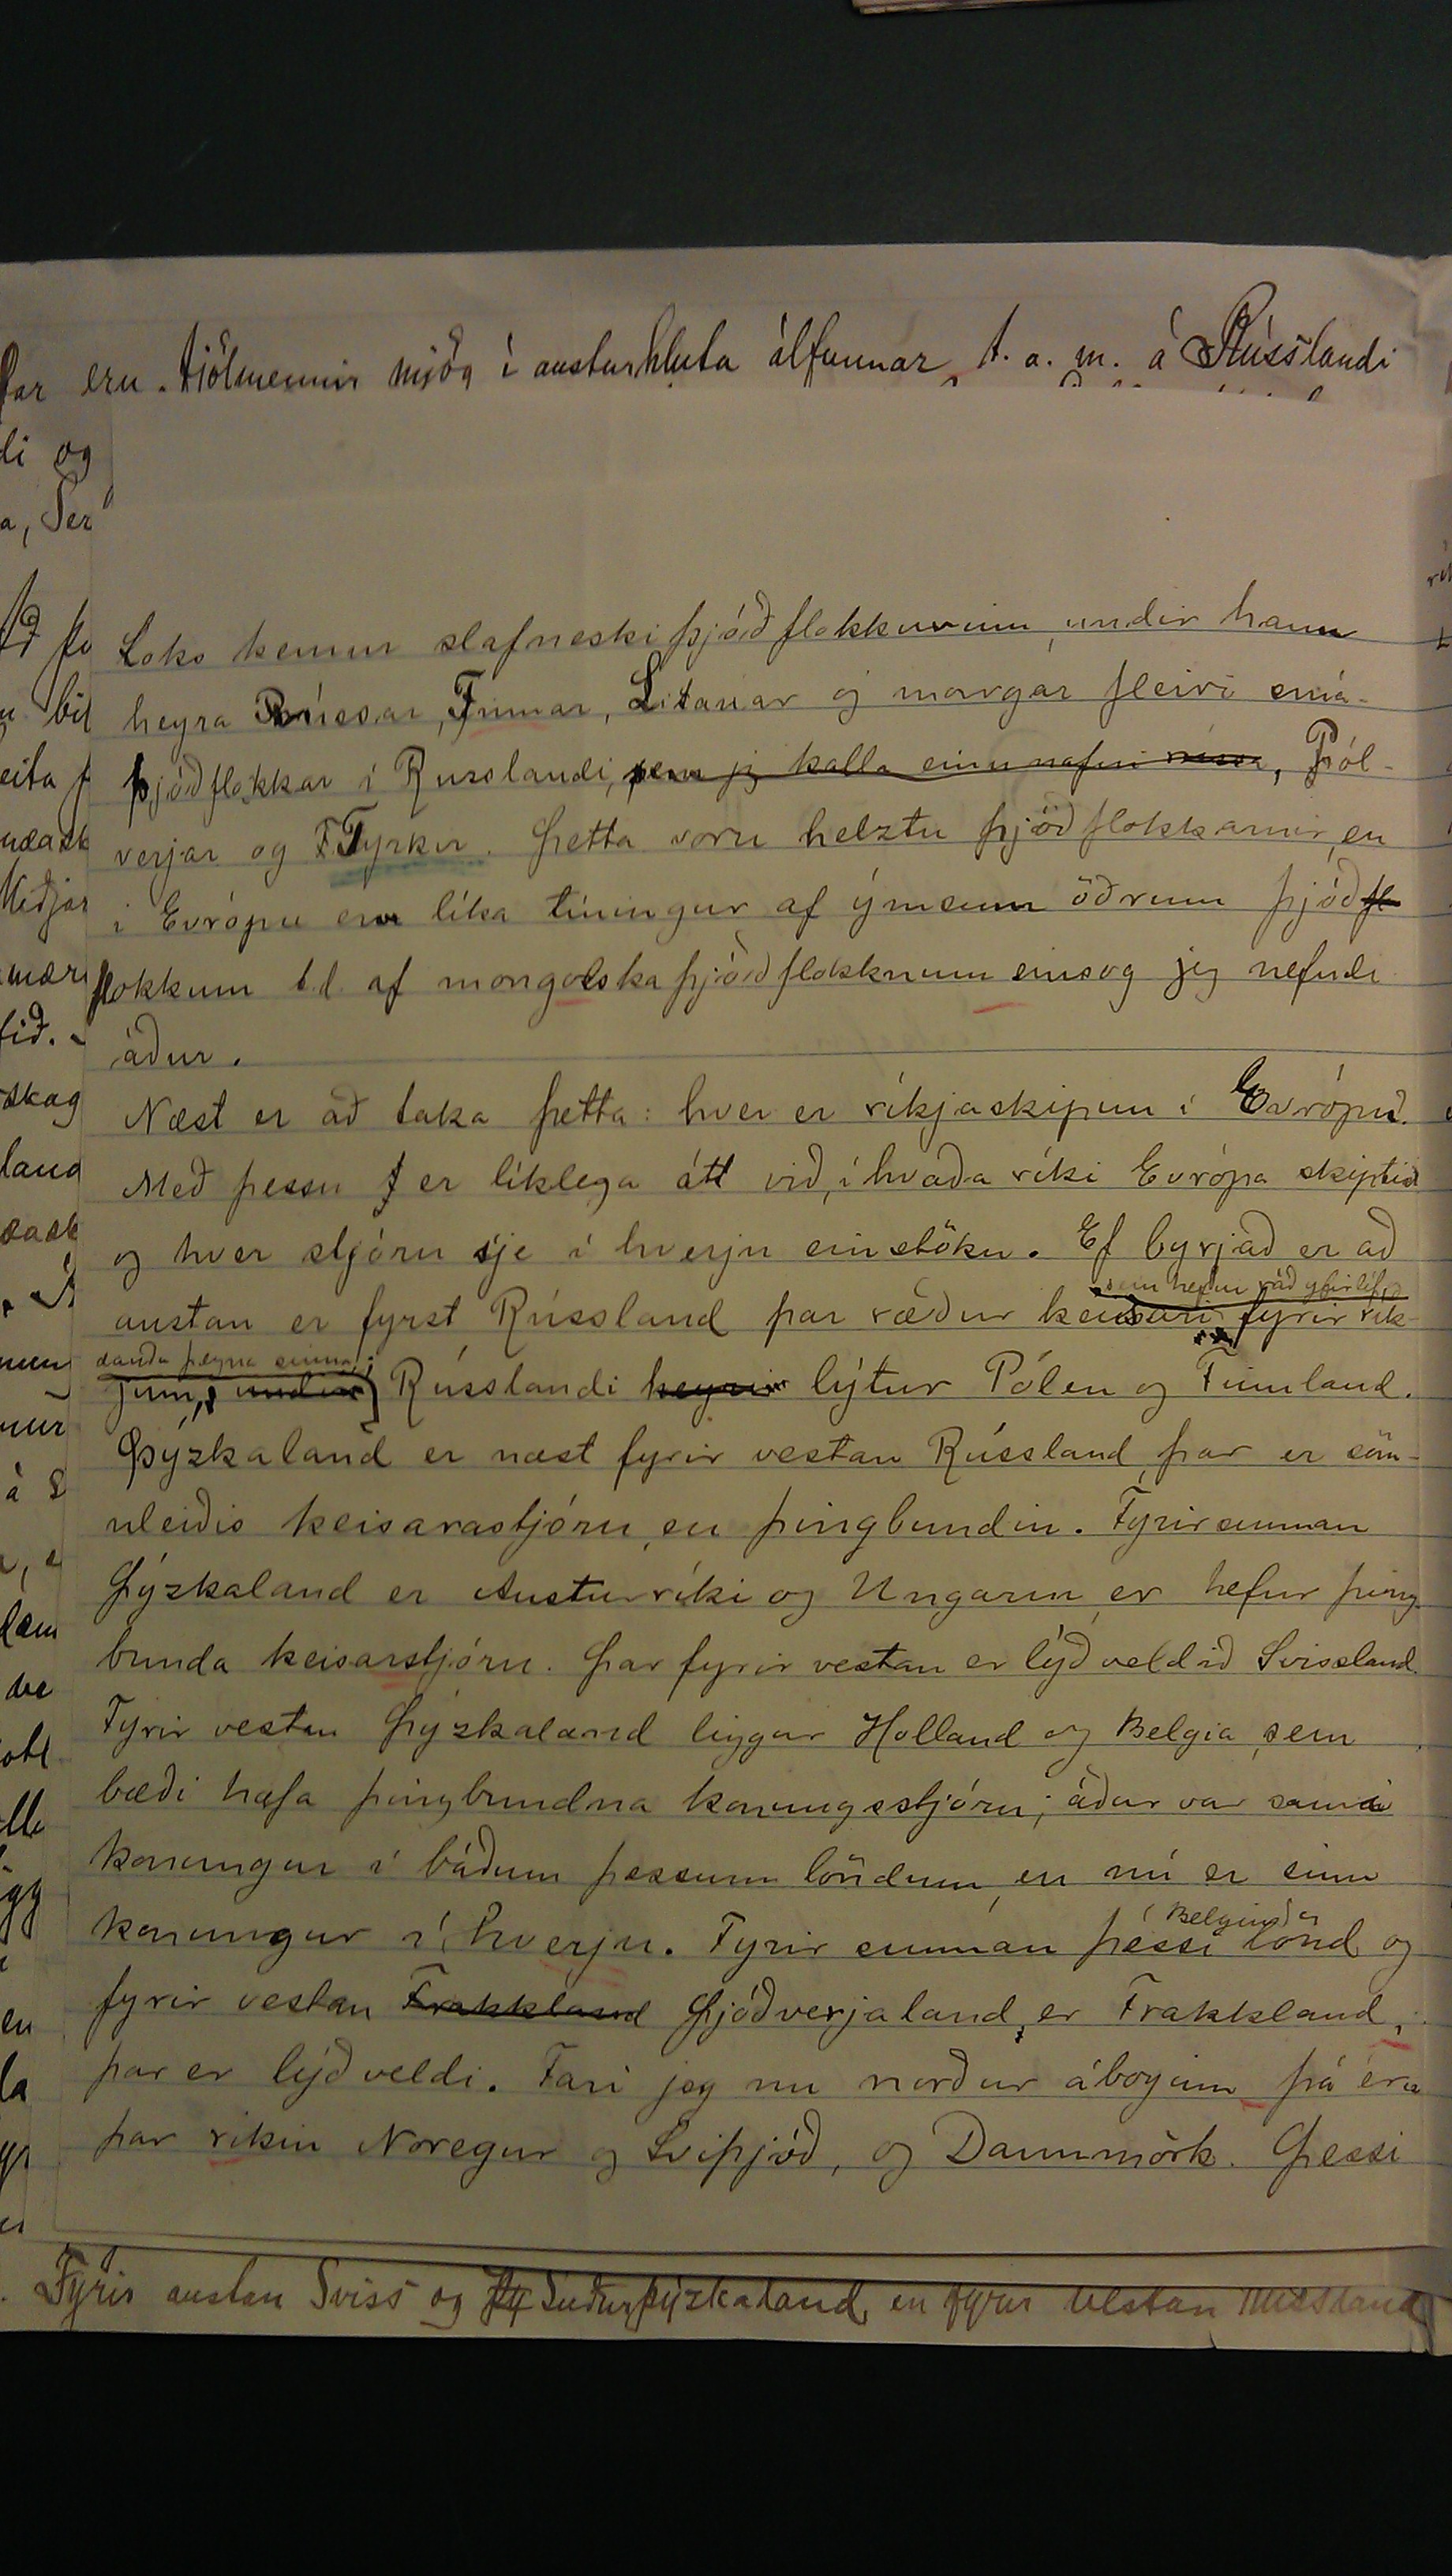 þar eru. fjölmennir mjög í austurhluta álfunnar, t. a. m. á Rússlandi
Loks kemur slafneski þjóðflokkurinn, undir hann
heyra Rússar, Finnar, Litauar og margar fleiri smá-
þjóðflokkar í Russlandi, sem jeg kalla einu nafni rússa, Pól-
verjar og Tyrkir. Þetta voru helztu þjóðflokkarnir, en
í Evrópu eru líka tíningur af ýmsum öðrum þjóðfl
flokkum t.d. af mongolska þjóðflokknum einsog jeg nefndi
áður.
Næst er að taka þetta: hver er ríkjaskipun í Evrópu.
Með þessu er líklega átt við, í hvaða ríki Evrópa skiptist
og hver stjórn sje í hverju einstöku. Ef byrjað er að
sem hefur ráð yfir lífi og
austan er fyrst Rússland þar ræður keisari fyrir rík-
dauða þegna sinna;
jum, undir Rússlandi heyrir lýtur Pólen og Finnland.
Þýzkaland er næst fyrir vestan Rússland, þar er söm-
uleiðis keisarastjórn, en þingbundin. Fyrir sunnan
Þýzkaland er Austurríki og Ungarn, er hefur þing-
bunda keisarstjórn. Þar fyrir vestan er lýðveldið Svissland.
Fyrir vestan Þýzkaland liggur Holland og Belgia, sem
bæði hafa þingbundna konungsstjórn; áður var sami
konungur í báðum þessum löndum, en nú er sinn
konungur í hverju. Fyrir sunnan þessi lönd og
fyrir vestan Frakkland Þjóðverjaland, er Frakkland,
þar er lýðveldi. Fari jeg nu norður áboginn þá eru
þar rikin Noregur og Svíþjóð, og Danmörk. Þessi
Fyrir austan Sviss og Suðurþýzkaland, en fyrir vestan Rússland